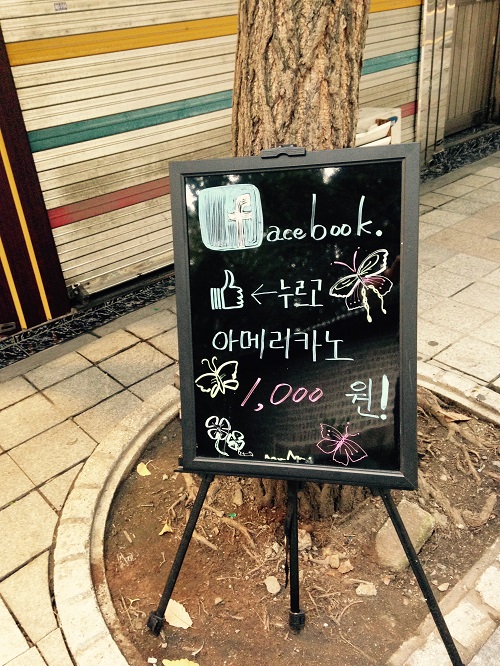 facebook.
←누르고
아메리카노
1,000 원!